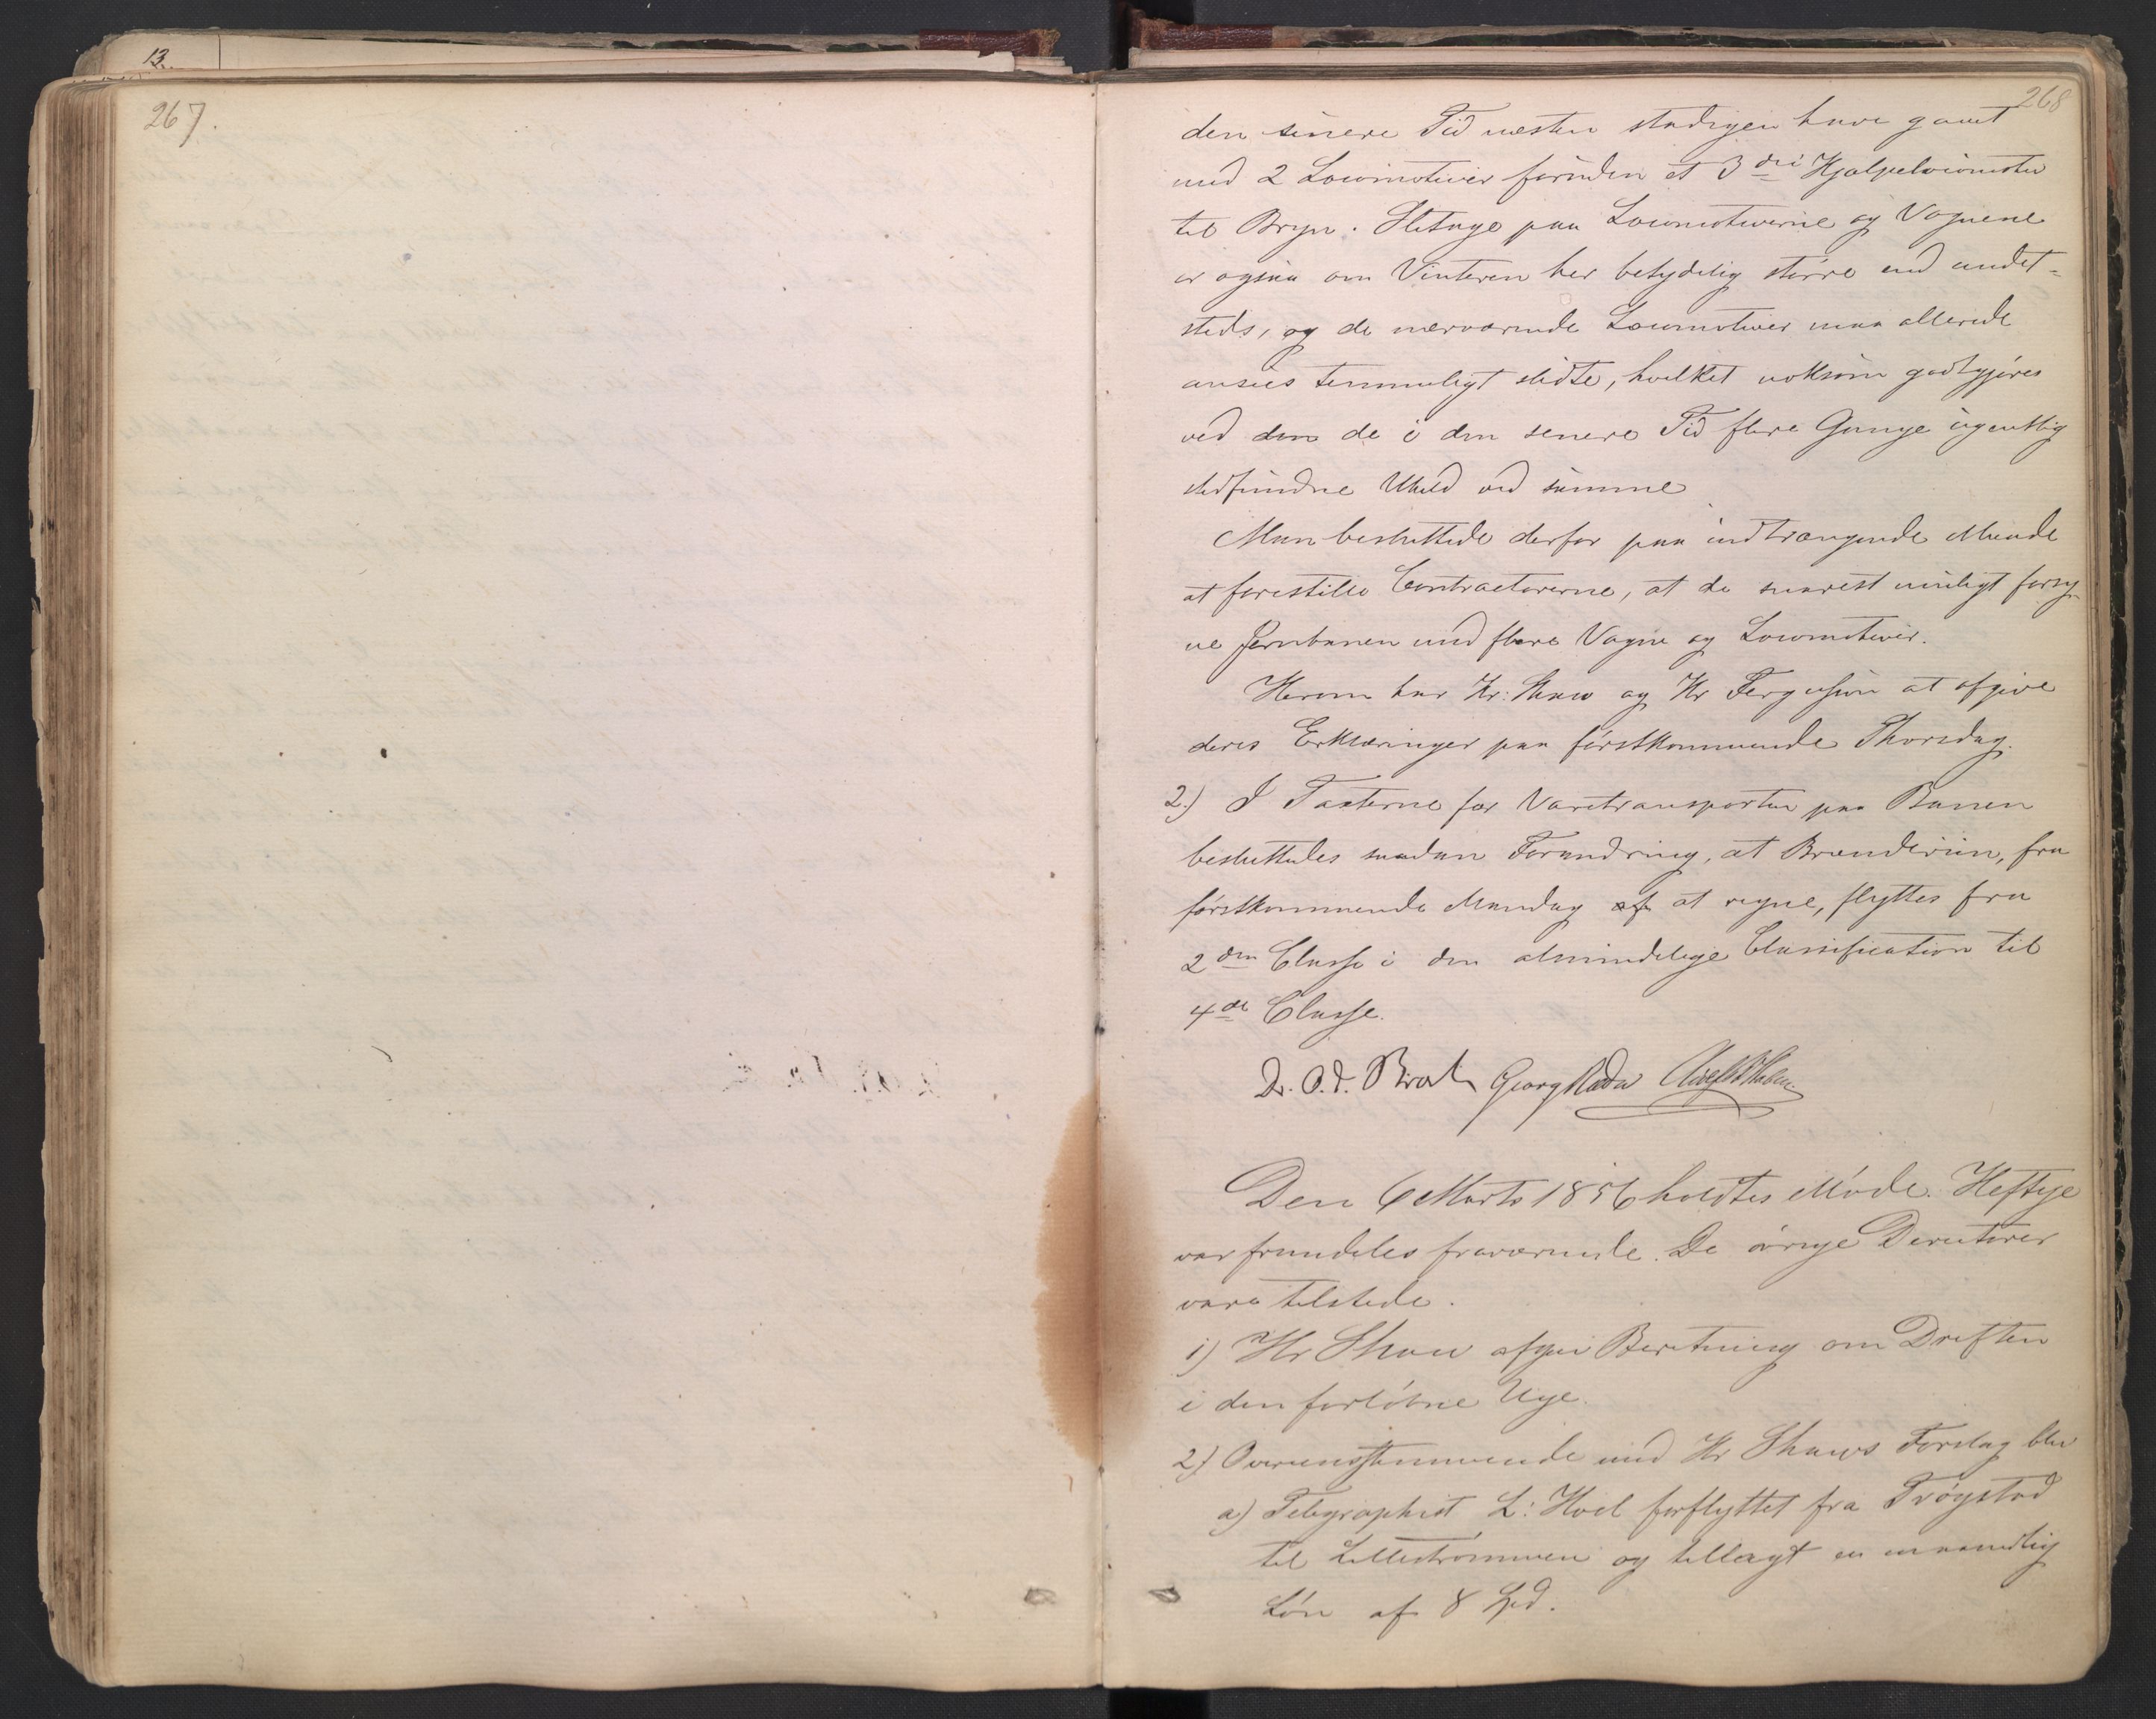 13.
267.
268
den senere Tid næsten stadigen have gaaet
med 2 Locomotiver foruden et 3die Hjælpelocomotiv
til Bryn. Slitage paa Locomotiverne og Vognene
er ogsaa om Vinteren her betydelig større end andet-
steds, og de nærværende Locomotiver maa allerede
ansees temmeligt slidte, hvilket noksom godtgjøres
ved den de i den senere Tid flere Gange ugentlig
stedfundne Uheld ved samme
Man besluttede derfor paa indtrængende Maade
at forestille Contractorerne, at de snarest muligt forsy-
ne Jernbanen med flere Vogne og Locomotiver.
Herom har Hr: Shaw og Hr Fergusson at afgive
deres Erklæringer paa førstkommende Thorsdag.
2.) I Taxterne for Varetransporten paa Banen
besluttedes saadan Forandring, at Brændeviin, fra
førstkommende Mandag af at regne, flyttes fra
2den Classe i den almindelige Classification til
4de Classe.
Georg
Den 6 Marts 1856 holdtes Møde. Heftye
var fremdeles fraværende. De øvrige Directører
vare tilstede.
1) Hr Shaw afgav Beretning om Driften
i den forløbne Uge.
2) Overensstemmende med Hr Shaws Forslag blev
a) Telegraphist L: Hoel forflyttet fra Trøgstad
til Lillestrømmen og tillagt en maanedlig
Løn af 8 Spd.